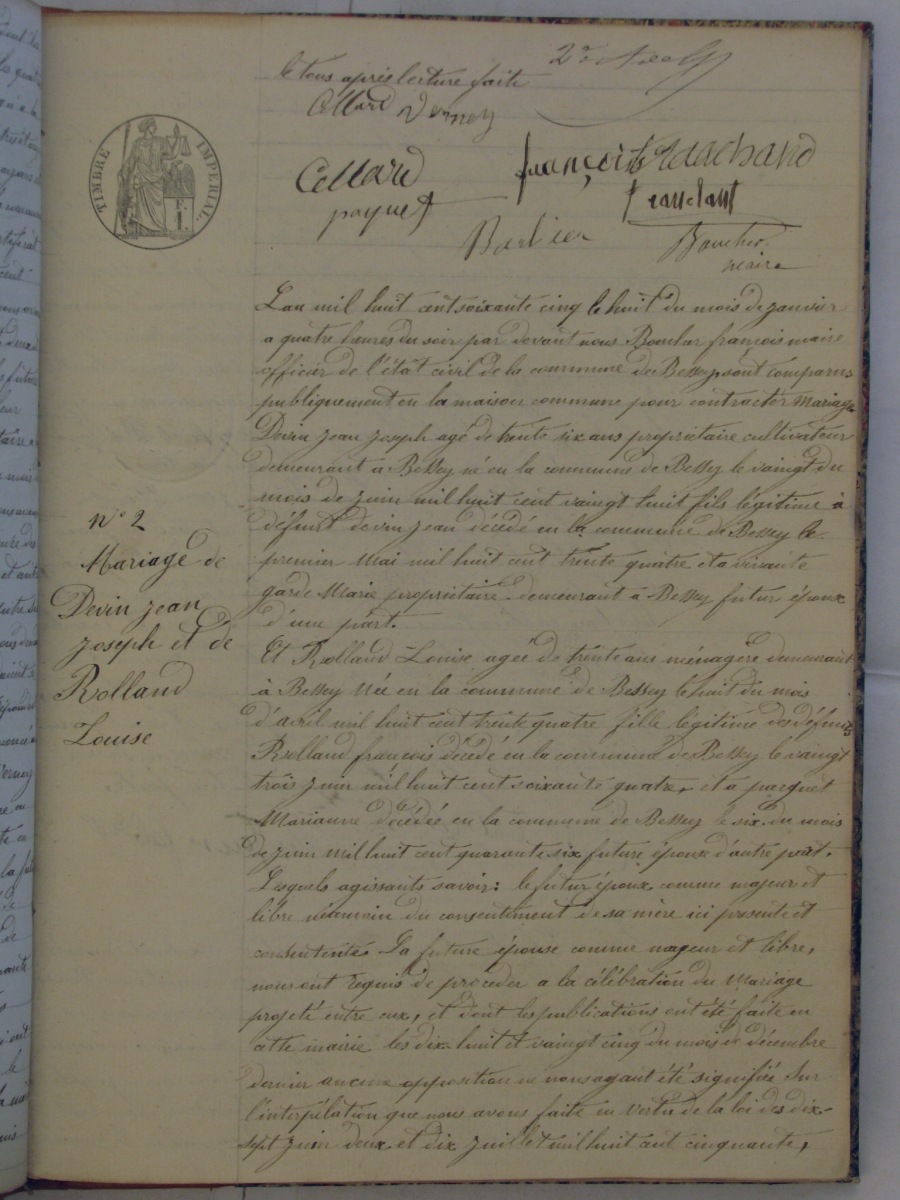 2e
le tous après lecture faite
Collard Vernay
TIMBRE IMPERIAL.
Collard françois Marchand
payuet
Barlier Boucher
maire
L'an mil huit cent soixante cinq le huit du mois de janvier
a quatre heures du soir par devant nous Bouchar françois maire
officier de l'état civil de la commune de Bessey, sont comparus
publiquement en la maison commune pour contracter Mariage
Devin Jean Joseph agé de trente six ans propriétaire cultivateur
demeurant à Bessey né en la commune de Bessey le vaingt du
mois de juin mil huit cent vaingt huit fils légitime à
défunt devin jean décédé en la commune de Bessey le
premier Mai mil huit cent trente quatre et a vivante
garde Marie propriétaire demeurant à Bessey futur époux
d'une part.
n° 2
Mariage de
Devin jean
joseph et de
Rolland
Louise
Et Rolland Louise agée de trente ans ménagère demeurant
à Bessey née en la commune de Bessey le huit du mois
d'avril mil huit cent trente quatre fille légitime des défunts
Rolland françois décédé en la commune de Bessey le vaingt
trois juin mil huit cent soixante quatre, et a parquet
Marianne décédée en la commune de Bessey le six du mois
de juin mil huit cent quarante six future époux d'autre part.
Lesquels agissants savoir: le futur époux comme majeur et
libre néamoin du consentiment de sa mère ici presente et
consentente. La future épouse comme majeur et libre,
nous ont requis de proceder a la célébration du Mariage
projeté entre eux, et dont les publications ont été faite en
cette mairie les dix-huit et vaingt cinq du mois de décembre
dernier aucune opposition ne nous ayant été signifiée Sur
l'interpélation que nous avons faite en vertu de la loi des dix-
sept juin deux et dix juillet mil huit cent cinquante,